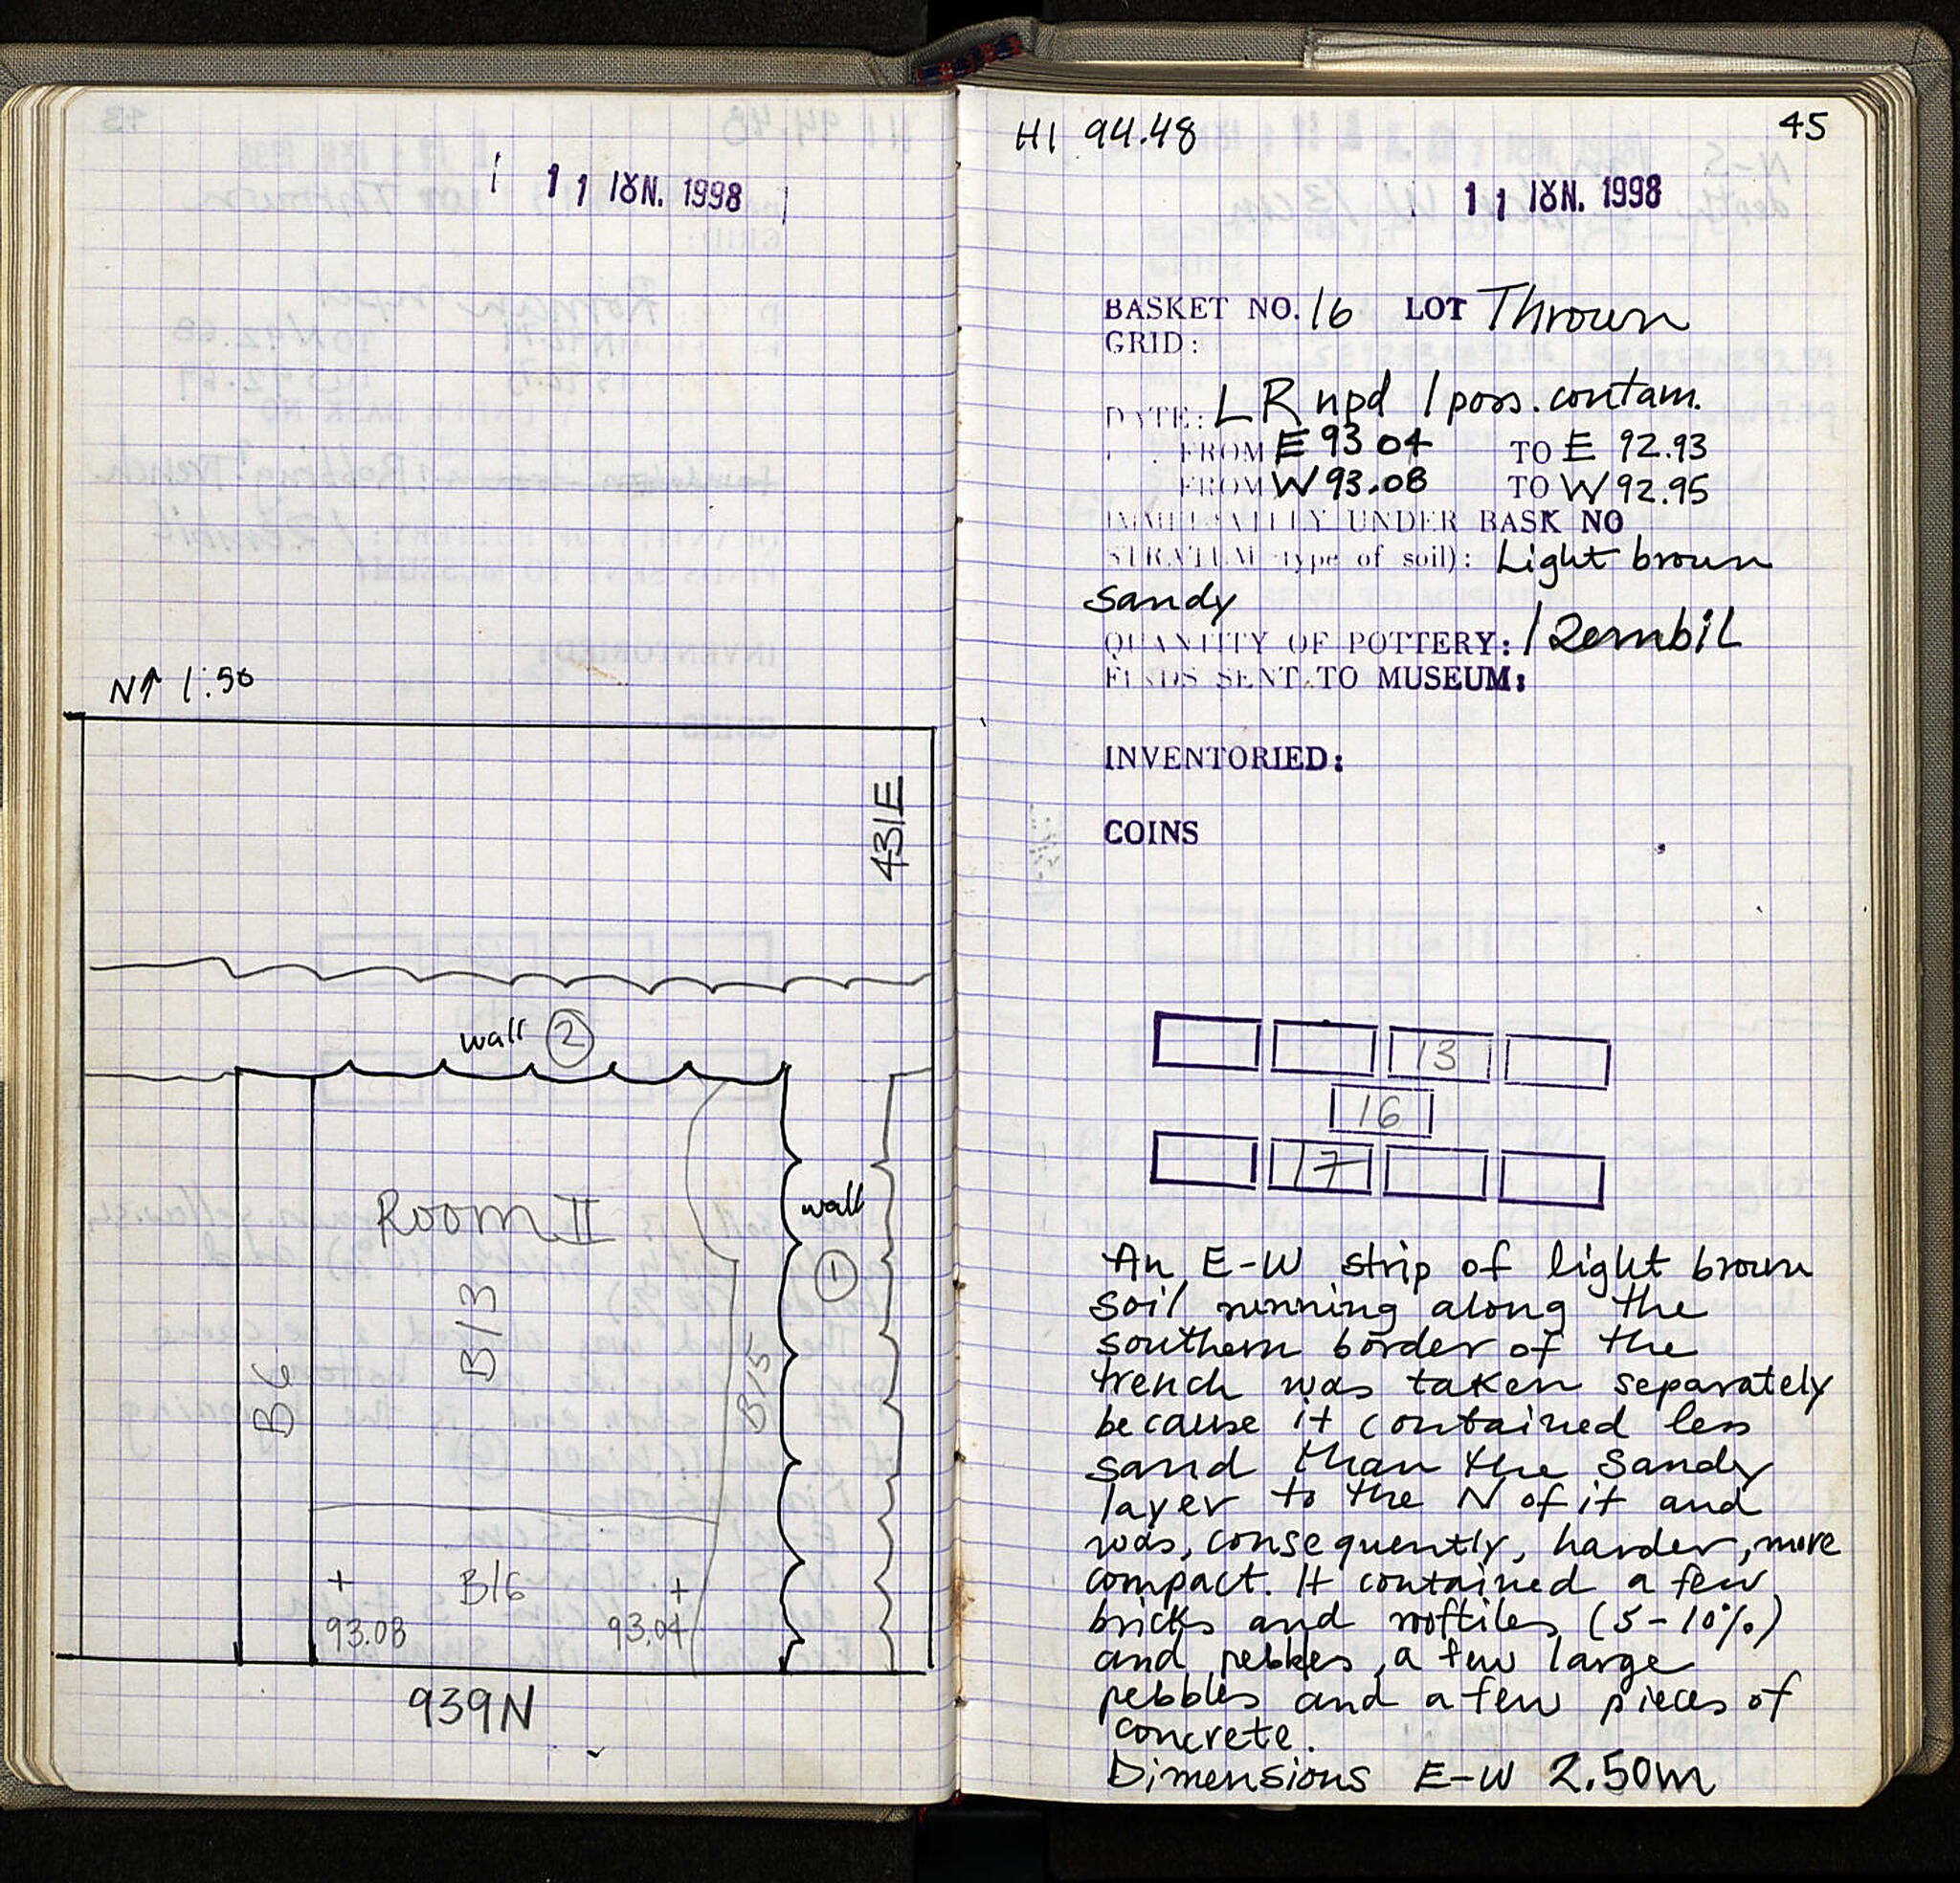 11 ΙȢΝ. 1998
N↑ 1:50
431E
wall ②
Room II
wall
①
B6
B13
B15
B16
+ +
93.08 93.04
939N
HI 94.48
45
11 ΙȢΝ. 1998
BASKET NO. 16 LOT Thrown
GRID:
DATE: LR npd / poss. contam.
FROM E 93 04 TO E 92.93
FROM W 93.08 TO W 92.95
IMMEDIATELY UNDER BASK NO
STRATUM (type of soil): Light brown
Sandy
QUANTITY OF POTTERY: 1 Zembil
FINDS SENT TO MUSEUM:
INVENTORIED:
COINS
13
16
17
An E-W strip of light brown
soil running along the
southern border of the
trench was taken separately
because it contained less
sand than the sandy
layer to the N of it and
was, consequently, harder, more
compact. It contained a few
bricks and rooftiles (5-10%)
and pebbles, a few large
pebbles and a few pieces of
concrete.
Dimensions E-W 2.50m